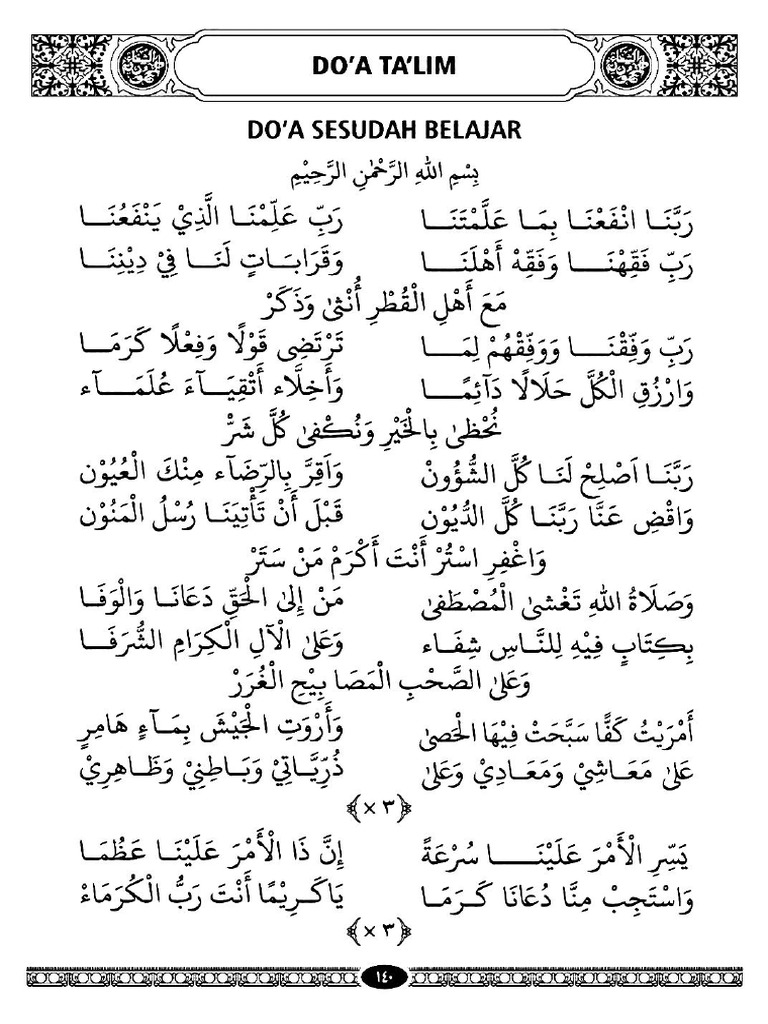 DO’A TA’LIM
DO’A SESUDAH BELAJAR
بِسْمِ اللهِ الرَّحْمٰنِ الرَّحِيْمِ
رَبَّنَـا انْفَعْنَـا بِمَـا عَلَّمْتَنَـا رَبِّ عَلِّمْنَـا الَّذِيْ يَنْفَعُنَـا
رَبِّ فَقِّهْنَـا وَفَقِّهْ أَهْلَنَـا وَقَرَابَـاتٍ لَنَـا فِيْ دِيْنِنَـا
مَعَ أَهْلِ الْقُطْرِ أُنْثىٰ وَذَكَرْ
رَبِّ وَفِّقْنَـا وَوَفِّقْهُمْ لِمَـا تَرْتَضِى قَوْلًا وَفِعْلًا كَرَمَـا
وَارْزُقِ الْكُلَّ حَلَالًا دَآئِمًـا وَأَخِلَّاء أَتْقِيَـآءَ عُلَمَـآء
نُحْظىٰ بِالْخَيْرِ وَنُكْفىٰ كُلَّ شَرّْ
رَبَّنَـا اَصْلِحْ لَنَـا كُلَّ الشُّؤُوْنْ وَاَقِرَّ بِالرِّضَآء مِنْكَ الْعُيُوْن
وَاقْضِ عَنَّا رَبَّنَـا كُلَّ الدُّيُوْن قَبْلَ أَنْ تَأْتِيَنَـا رُسْلُ الْمَنُوْن
وَاغْفِرِ اسْتُرْ أَنْتَ أَكْرَمْ مَنْ سَتَرْ
وَصَلَاةُ اللهِ تَغْشىٰ الْمُصْطَفىٰ مَنْ إِلىٰ الْحَقِّ دَعَانَـا وَالْوَفَـا
بِكِتَابٍ فِيْهِ لِلنَّـاسِ شِفَـاء وَعَلىٰ الْآلِ الْكِرَامِ الشُّرَفَـا
وَعَلىٰ الصَّحْبِ الْمَصَابِيْحِ الْغُرَرْ
أَمْرَيْتُ كَفًّا سَبَّحَتْ فِيْهَا الْحَصىٰ وَأَرْوَتِ الْجَيْشَ بِمَـآءٍ هَامِرٍ
عَلىٰ مَعَـاشِيْ وَمَعَـادِيْ وَعَلىٰ ذُرِّيَّاتِيْ وَبَاطِنِيْ وَظَاهِرِيْ
﴿٣ ×﴾
يَسِّرِ الْأَمْرَ عَلَيْنَـا سُرْعَةً إِنَّ ذَا الْأَمْرَ عَلَيْنَـا عَظُمَـا
وَاسْتَجِبْ مِنَّا دُعَانَا كَرَمَـا يَاكَرِيْمًا أَنْتَ رَبُّ الْكُرَمَاءْ
﴿٣ ×﴾
١٤٠